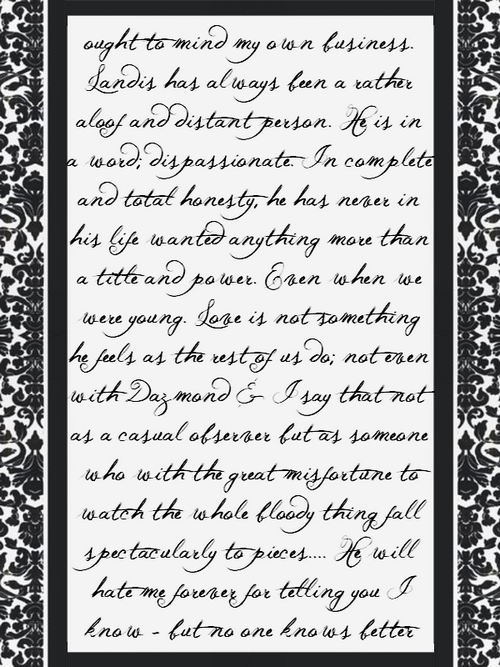 ought to mind my own business.
Landis has always been a rather
aloof and distant person. He is in
a word; dispassionate. In complete
and total honesty, he has never in
his life wanted anything more than
a title and power. Even when we
were young. Love is not something
he feels as the rest of us do; not even
with Dazmond & I say that not
as a casual observer but as someone
who with the great misfortune to
watch the whole bloody thing fall
spectacularly to pieces.... He will
hate me forever for telling you I
know - but no one knows better